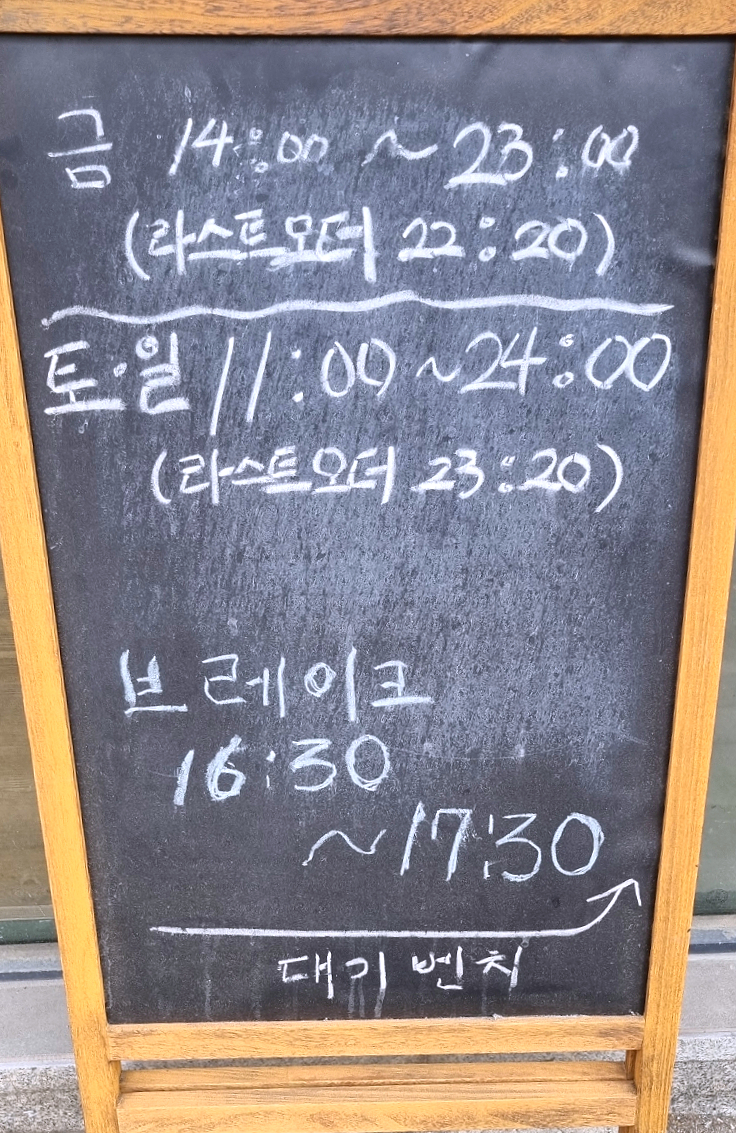 금 14:00 ~ 23:00
(라스트오더 22:20)
토·일 11:00 ~24:00
(라스트오더 23:20)
브레이크
16:30
~17:30
대기 벤치